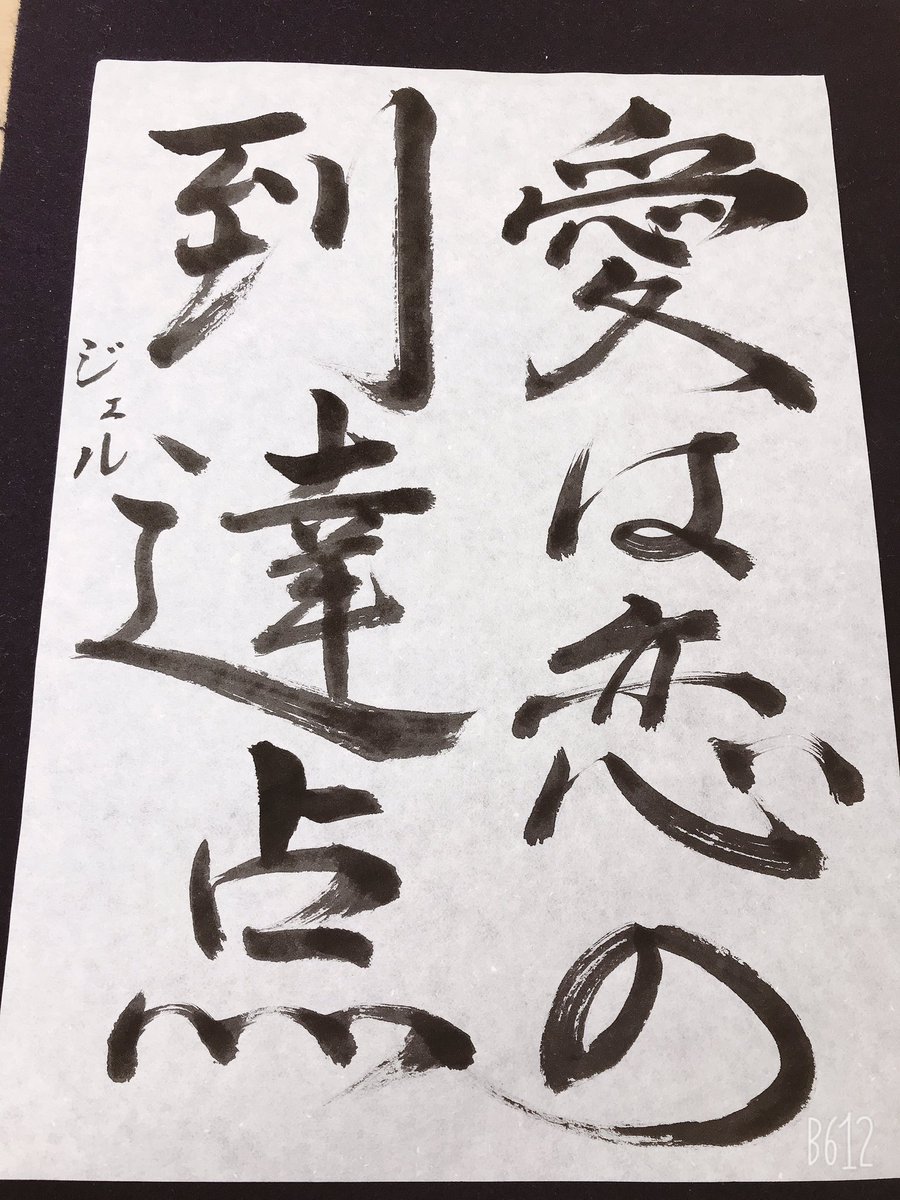 愛は恋の
到達点
ジェル
B612